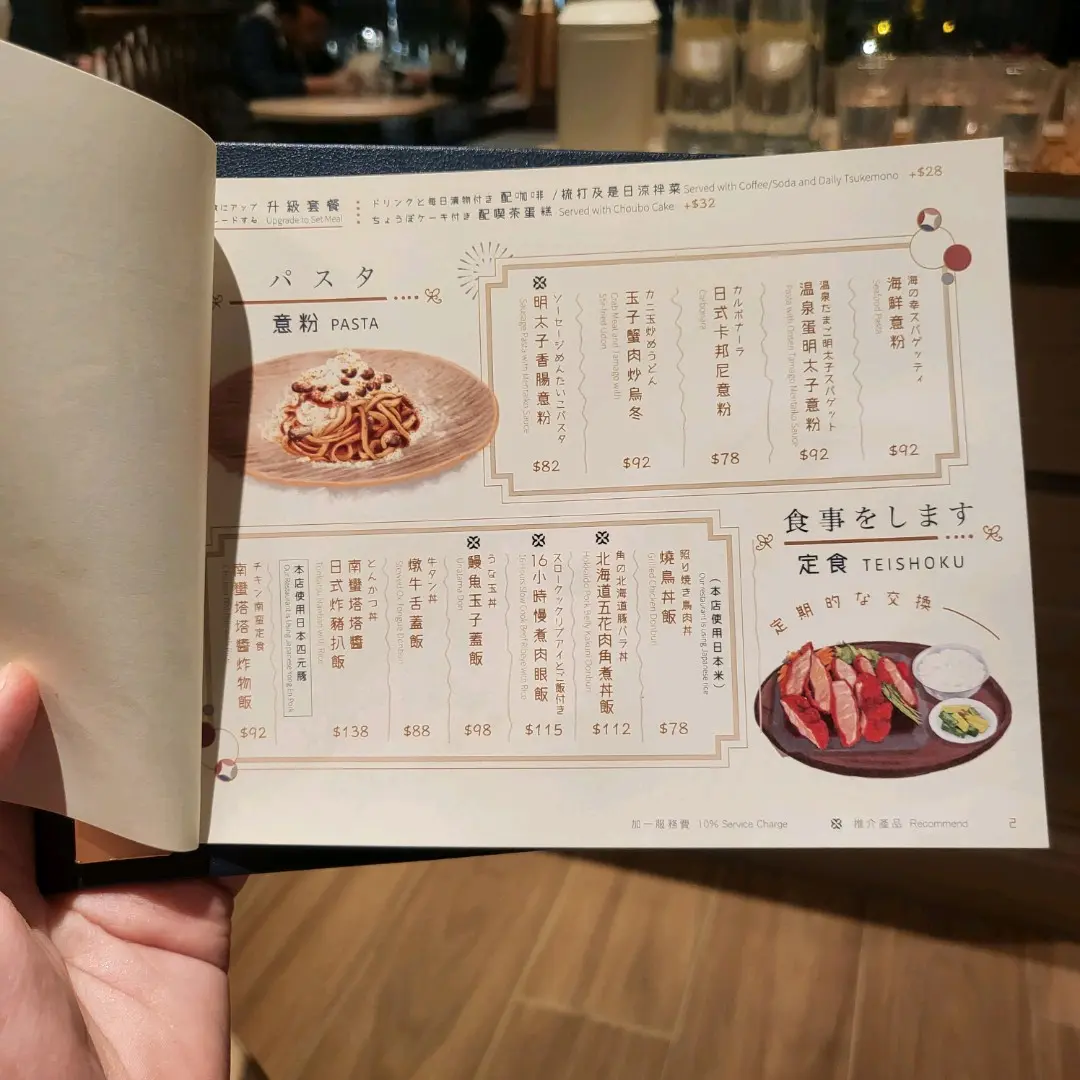 升級套餐
Upgrade to Set Meal
ドリンクと毎日漬物付き 配咖啡/梳打及是日涼拌菜 Served with Coffee/Soda and Daily Tsukemono +$28
ちょうぼケーキ付き 配喫茶蛋糕 Served with Choubo Cake +$32
パスタ
意粉 PASTA
海の幸スパゲッティ
海鮮意粉
Seafood Pasta
$92
温泉たまご明太子スパゲット
温泉蛋明太子意粉
Pasta with Onsen Tamago Mentaiko Sauce
$92
カルボナーラ
日式卡邦尼意粉
Carbonara
$78
カニ玉炒めうどん
玉子蟹肉炒烏冬
Crab Meat and Tamago with
Stir-fried Udon
$92
ソーセージめんたいこパスタ
明太子香腸意粉
Sausage Pasta with Mentaiko Sauce
$82
食事をします
定食 TEISHOKU
定期的な交換
(本店使用日本米)
Our restaurant is using Japanese rice
照り焼き鳥肉丼
燒鳥丼飯
Grilled Chicken Donburi
$78
角の北海道豚バラ丼
北海道五花肉角煮丼飯
Hokkaido Pork Belly Kakuni Donburi
$112
スロークックリブアイとご飯付き
16小時慢煮肉眼飯
$115
うな玉丼
鰻魚玉子蓋飯
Unatama Don
$98
牛タン丼
燉牛舌蓋飯
Stewed Ox Tongue Donburi
$88
とんかつ丼
南蠻塔塔醬
日式炸豬扒飯
$138
本店使用日本四元豚
Our Restaurant is Using Japanese Yong En Pork
チキン南蛮定食
南蠻塔塔醬炸物飯
$92
加一服務費 10% Service Charge
推介產品 Recommend
2